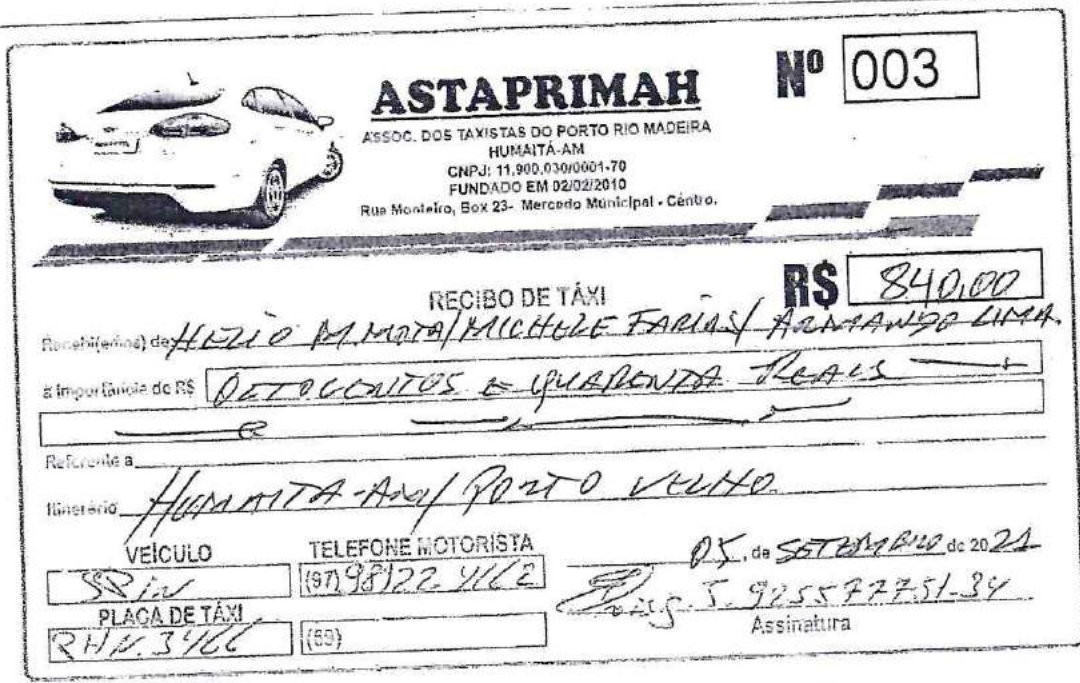 ASTAPRIMAH
Nº 003
ASSOC. DOS TAXISTAS DO PORTO RIO MADEIRA
HUMAITÁ-AM
CNPJ: 11.900.030/0001-70
FUNDADO EM 02/02/2010
Rua Monteiro, Box 23- Mercado Municipal - Centro.
RECIBO DE TÁXI
R$ 840,00
Recebi(emos) de HELIO M. MOTA/MICHELE FARIAS/ ARMANDO LIMA.
a importância de R$ OITOCENTOS E QUARENTA REAIS
Referente a
Itinerário HUMAITA-AM/ PORTO VELHO
VEÍCULO TELEFONE MOTORISTA 05, de SETEMBRO de 2021
SPIN (97) 98122
PLACA DE TÁXI
(69)
Assinatura